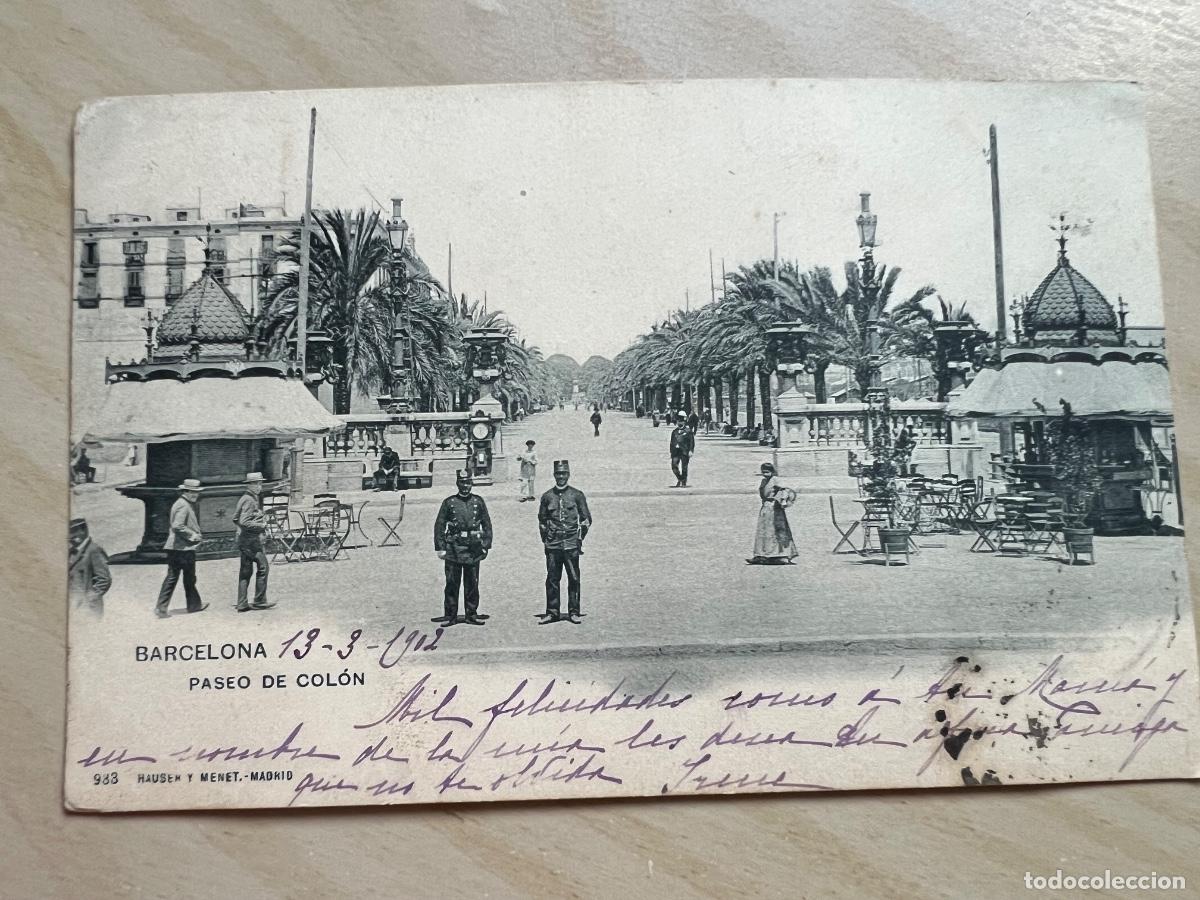 BARCELONA 13-3-1902
PASEO DE COLÓN
Mil felicidades como á tu Mamá y
en nombre de la mia les desea tu afma amiga
que no te olvida Irene
983 HAUSER Y MENET.-MADRID
todocoleccion